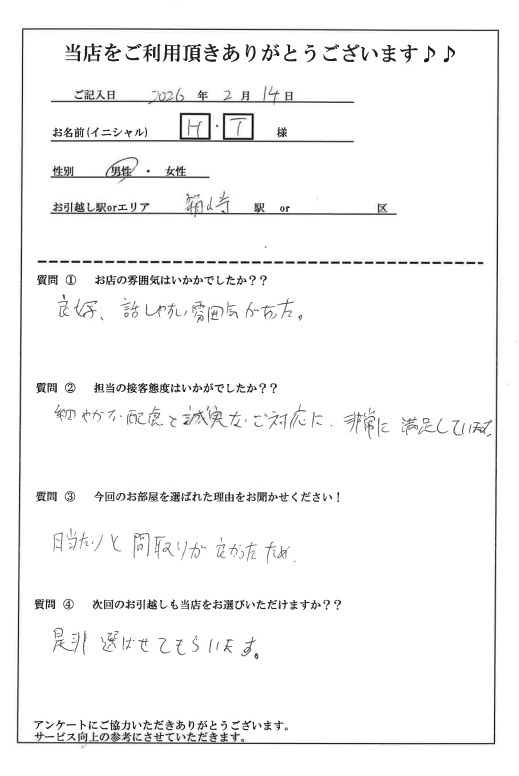 当店をご利用頂きありがとうございます♪♪
ご記入日 2026 年 2 月 14 日
お名前(イニシャル) H ・ T 様
性別 男性 ・ 女性
お引越し駅orエリア 箱崎 駅 or 区
質問 ① お店の雰囲気はいかかでしたか??
良好、話しやすい雰囲気があった。
質問 ② 担当の接客態度はいかがでしたか??
細やかな配慮と誠実なご対応に、非常に満足しています。
質問 ③ 今回のお部屋を選ばれた理由をお聞かせください!
日当たりと間取りが良かったため。
質問 ④ 次回のお引越しも当店をお選びいただけますか??
是非選ばせてもらいます。
アンケートにご協力いただきありがとうございます。
サービス向上の参考にさせていただきます。